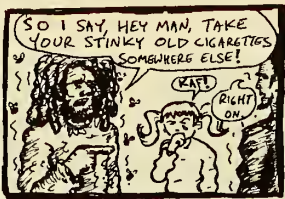 SO I SAY, HEY MAN, TAKE
YOUR STINKY OLD CIGARETTES
SOMEWHERE ELSE!
KAF!
RIGHT
ON.